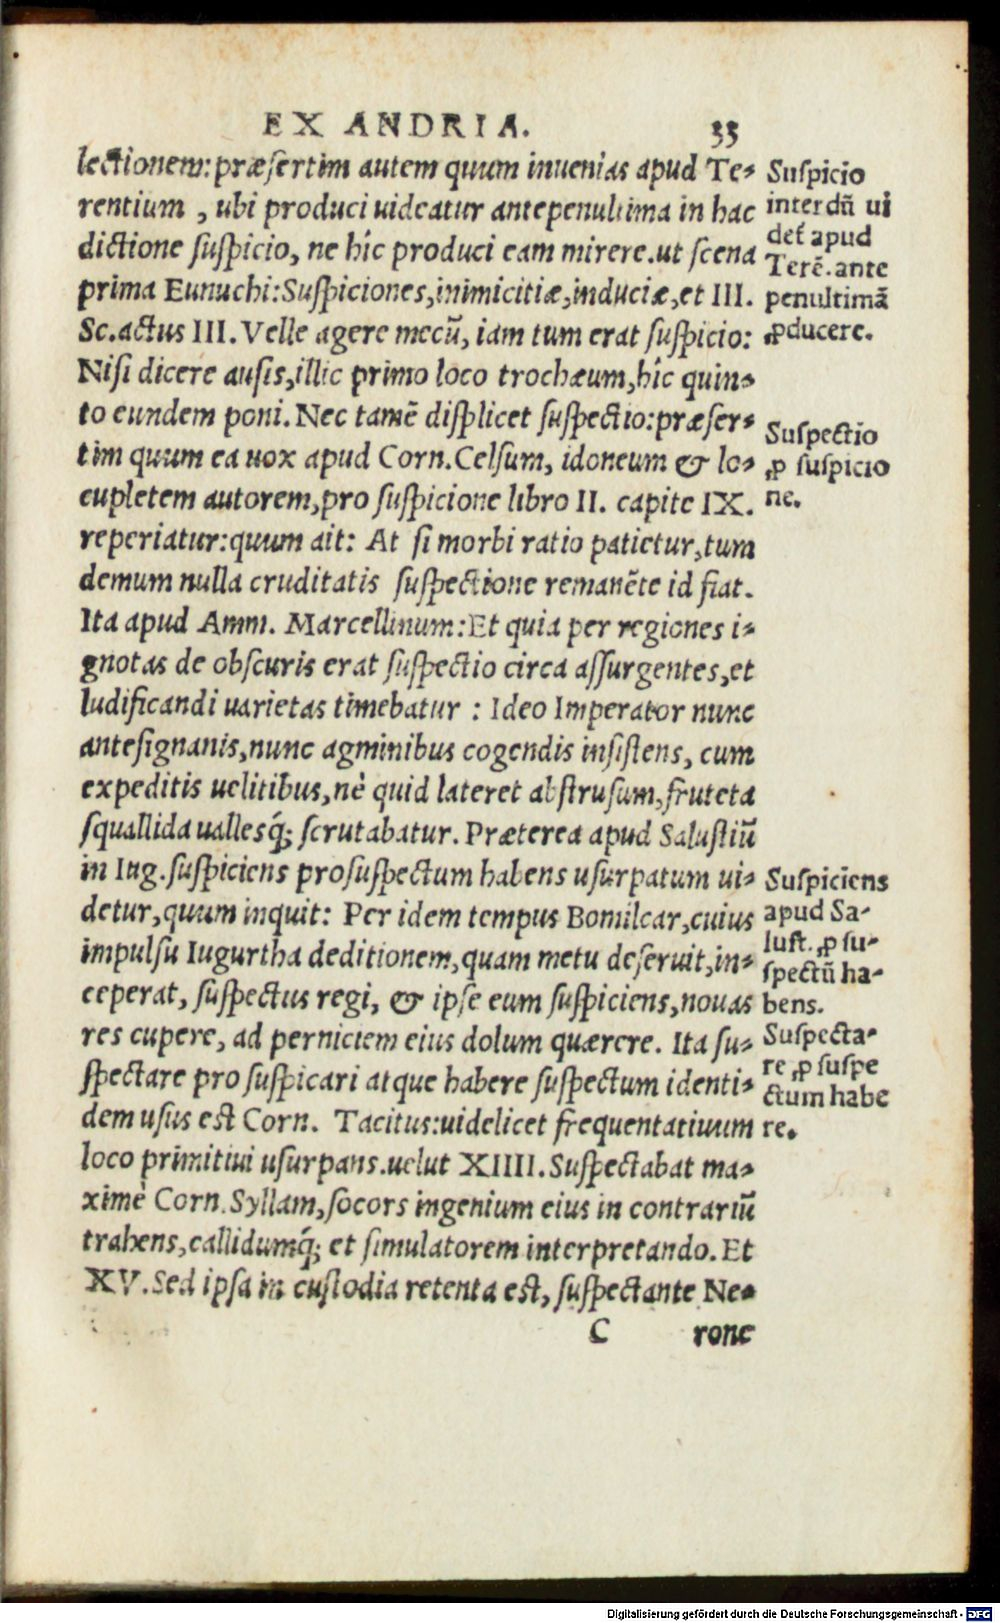 EX ANDRIA. 33
lectionem: præsertim autem quum inuenias apud Te-
rentium , ubi produci uideatur antepenultima in hac
dictione suspicio, ne hîc produci eam mirere. ut scena
prima Eunuchi: Suspiciones, inimicitiæ, induciæ, et III.
Sc. actus III. Velle agere mecũ, iam tum erat suspicio:
Nisi dicere ausis, illic primo loco trochæum, hîc quin-
to eundem poni. Nec tamẽ displicet suspectio: præser-
tim quum ea uox apud Corn. Celsum, idoneum & lo-
cupletem autorem, pro suspicione libro II. capite IX.
reperiatur: quum ait: At si morbi ratio patietur, tum
demum nulla cruditatis suspectione remanẽte id fiat.
Ita apud Amm. Marcellinum: Et quia per regiones i-
gnotas de obscuris erat suspectio circa assurgentes, et
ludificandi uarietas timebatur : Ideo Imperator nunc
antesignanis, nunc agminibus cogendis insistens, cum
expeditis uelitibus, nè quid lateret abstrusum, fruteta
squallida uallesq́; scrutabatur. Præterea apud Salustiũ
in Iug. suspiciens pro suspectum habens usurpatum ui-
detur, quum inquit: Per idem tempus Bomilcar, cuius
impulsu Iugurtha deditionem, quam metu deseruit, in-
ceperat, suspectus regi, & ipse eum suspiciens, nouas
res cupere, ad perniciem eius dolum quærere. Ita su-
spectare pro suspicari atque habere suspectum identi-
dem usus est Corn. Tacitus: uidelicet frequentatiuum
loco primitiui usurpans. uelut XIIII. Suspectabat ma-
ximè Corn. Syllam, socors ingenium eius in contrariũ
trahens, callidumq́; et simulatorem interpretando. Et
XV. Sed ipsa in custodia retenta est, suspectante Ne-
C rone
Suspicio
interdũ ui
det̃ apud
Terẽ. ante
penultimã
ꝓducere.
Suspectio
ꝓ suspicio
ne.
Suspiciens
apud Sa-
lust. ꝓ su-
spectũ ha-
bens.
Suspecta-
re ꝓ suspe
ctum habe
re.
Digitalisierung gefördert durch die Deutsche Forschungsgemeinschaft - DFG